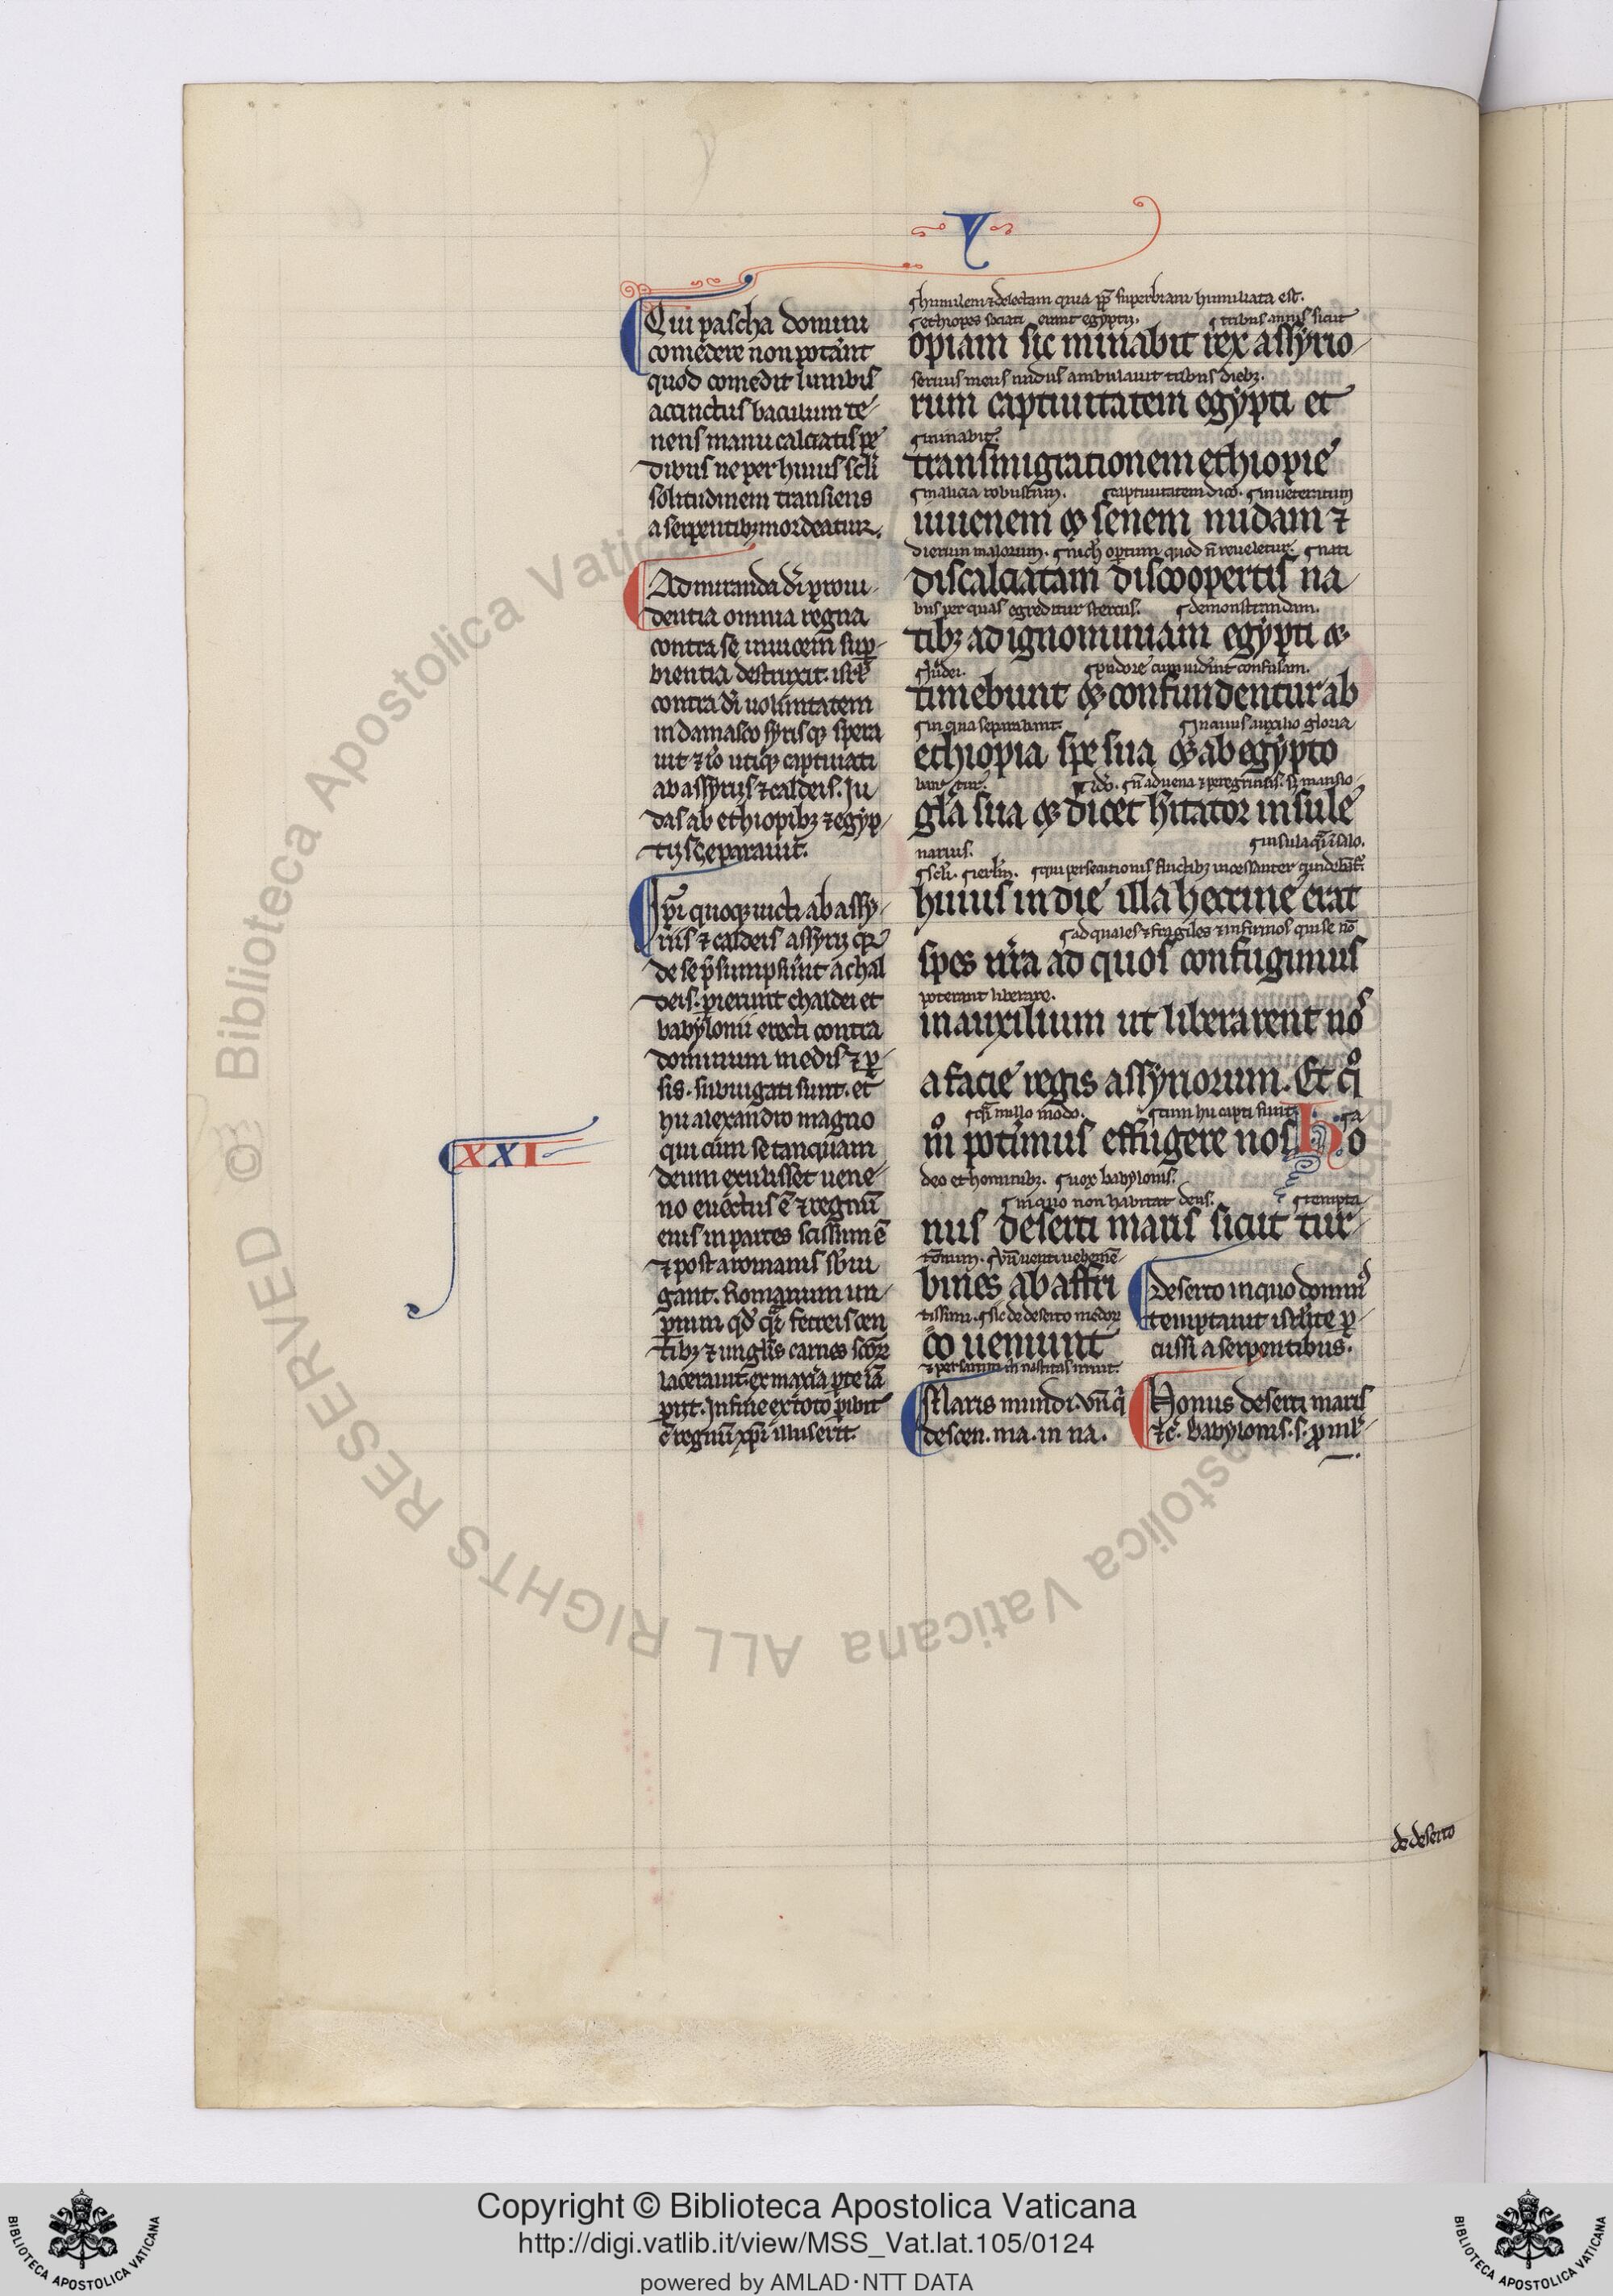 Y
Qui pascha domini
comedere non potant
quod comedit lumbis
accinctus baculum te
nens manu calciatis pe
dibus ne per huius scli
solitudinem transiens
a serpentibꝫ mordeatur.
Admiranda di proui
dentia omnia regna
contra se inuicem sup
bientia destruxit. isrl
contra di uoluntatem
in damasco syrisqꝫ spera
uit ⁊ io utiqꝫ captiuati
ab assyriis ⁊ caldeis. Iu
das ab ethiopibꝫ ⁊ egyp
tiis separauit.
Ipi quoqꝫ uicti ab assy
riis ⁊ caldeis assyrii qꝫ
de se psumpsunt a chal
deis. pierunt chaldei et
babylonii erecti contra
dominum medis ⁊ p
sis. subiugati sunt. et
hii alexandro magno
qui cum se tanquam
deum extulisset uene
no euectus e ⁊ regnu
eius in partes scissum e
⁊ post a romanis sbiu
gant. Romanum im
ꝑium qd qi ferreis den
tibꝫ ⁊ unglis carnes scor
lacerauit. ex maxia pte ia
ꝑiit. In fine ex toto ꝑibit
c regnu xpi illuserit.
XXI
humilem ⁊ delectam quia pp superbiam humiliata est.
ethiopes sociati erunt egyptii. tribus annis sicut
opiam sic minabit rex assyrio
seruus meus nudus ambulauit tribus diebꝫ.
rum captiuitatem egypti et
minabit.
transmigrationem ethiopie
malicia robustum. captiuitatem dico. inueteratum
iuuenem ⁊ senem nudam ⁊
dierum malorum. nich optum quod n reueletur. nati
discalciatam discoopertis na
bus per quas egreditur stercus. demonstrandam.
tibꝫ ad ignominiam egypti ⁊
iudei. pudore cum uidint confusam.
timebunt ⁊ confundentur ab
in qua separabant. in cuius auxilio gloria
ethiopia spe sua ⁊ ab egypto
bantur. ido. n aduena ⁊ peregrinus. sꝫ mansio
gla sua ⁊ dicet hitator insule
narius. insula qi i salo.
scli. ierlm. que persecutionis fluctibꝫ incessanter
huius in die illa heccine erat
ad quales ⁊ fragiles ⁊ infirmos qui se no
spes nra ad quos confugimus
poterant liberare.
in auxilium ut liberarent nos
a facie regis assyriorum. Et qo
qi nullo modo. cum hii capti sunt. a
m potimus effugere nos. Ho
deo et hominibꝫ. uox babylonis.
in quo non habitat deus. tempta
nus deserti maris sicut tur
tionum. Vn uenti uehemen
bines ab affri
tissimi. sic de deserto medor
co ueniunt
⁊ persarum in uastitas uenit.
Maris mundi. vn qi
descen. ma. in na.
Deserto in quo dominus
temptauit isrlite ꝑ
cussi a serpentibus.
Honus deserti maris
⁊c. babylonis. s. ꝓ
de deserto
© Biblioteca Apostolica Vaticana ALL RIGHTS RESERVED
Copyright © Biblioteca Apostolica Vaticana
http://digi.vatlib.it/view/MSS_Vat.lat.105/0124
powered by AMLAD·NTT DATA
BIBLIOTECA APOSTOLICA VATICANA
BIBLIOTECA APOSTOLICA VATICANA